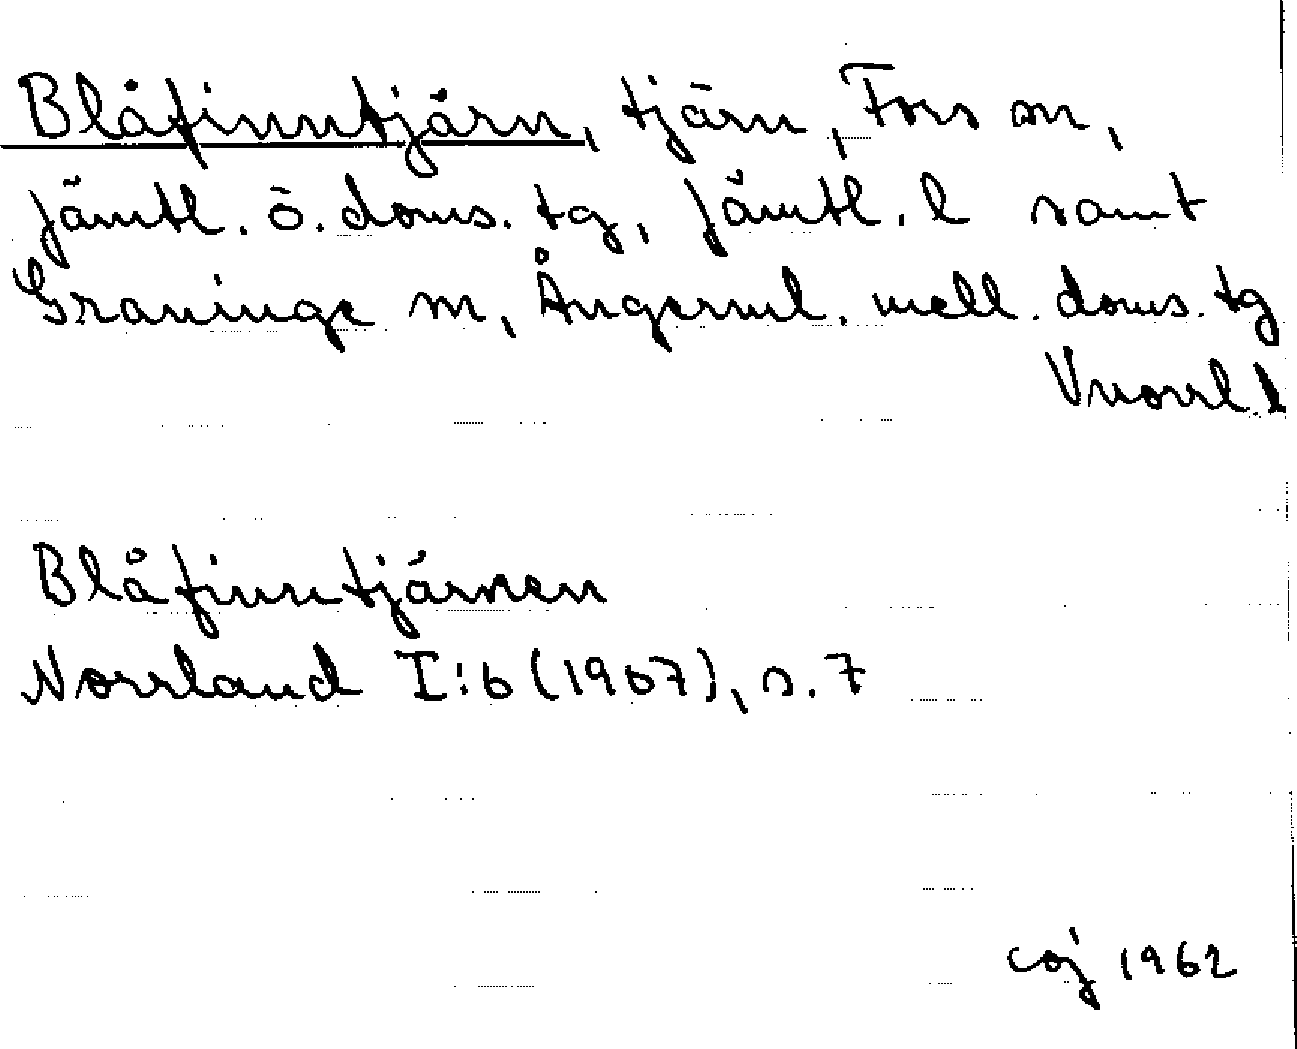 Blåfinntjärn, tjärn, Fors sn,
Jämtl. ö. doms. tg, Jämtl. l samt
Graninge sn, Ångerml. mell. doms. tg
Vnorrl. l
Blåfinntjärnen
Norrland I:6 (1907), s. 7
coj 1962